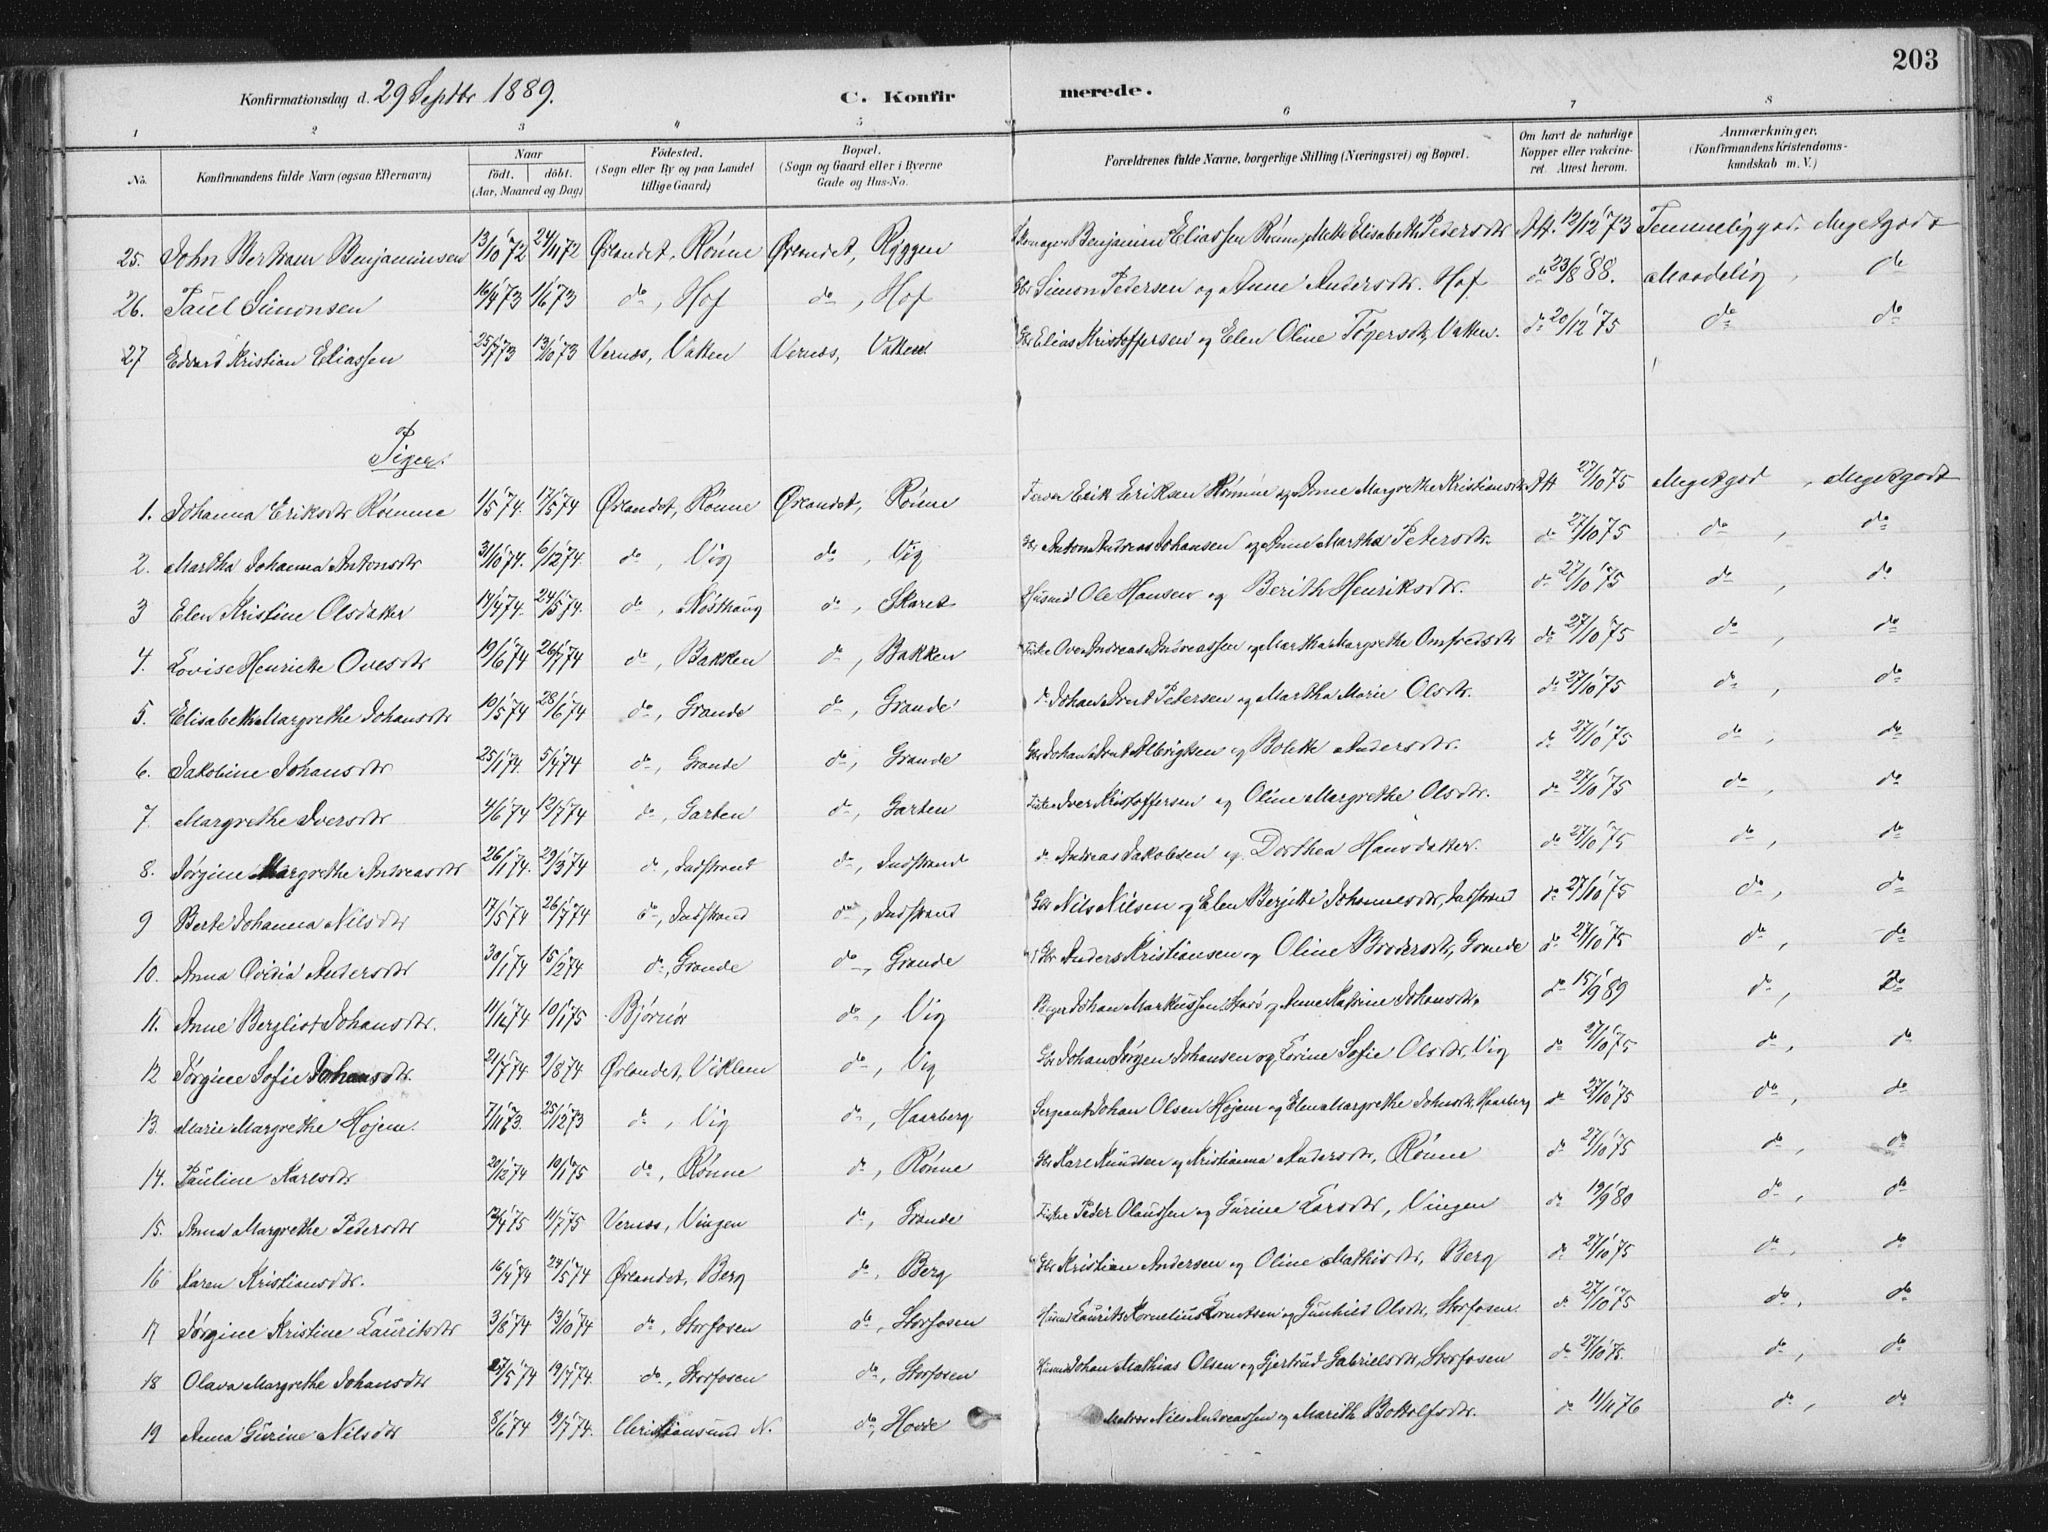 203
Konfirmationsdag d. 29 Septbr 1889. C. Konfirmerede.
1 2 3 4 5 6 7 8
No. Konfirmandens fulde Navn (ogsaa Efternavn) Naar født. døbt. (Aar, Maaned og Dag) Fødested. (Sogn eller By og paa Landet tillige Gaard) Bopæl. (Sogn og Gaard eller i Byerne Gade og Hus-No. Forældrenes fulde Navne, borgerlige Stilling (Næringsvei) og Bopæl. Om havt de naturlige Kopper eller vakcineret. Attest herom. Anmærkninger. (Konfirmandens Kristendomskundskab m. V.)
25. John Bertram Benjaminsen 13/10 72 24/11 72 Ørlandet, Rønne Ørlandet, Ryggen Benjamin Eliassen Rønne, Mette Elisabeth Pedersdtr Att. 12/12 '73 Temmeliggod. Megetgodt
26. Paul Simonsen 16/4 73 1/6 73 do, Hof do, Hof Gbr Simon Pedersen og Anne Andersdtr. Hof do 23/8 '88. Maadelig, do
27 Edvard Kristian Eliassen 25/7 73 13/10 73 Vernæs, Vatten Vernæs, Vatten Gbr Elias Kristoffersen og Elen Oline Tøgersdtr, Vatten. do 20/12 '75 do do
Piger.
1. Johanna Eriksdtr Rømme 1/5 74. 17/5 74 Ørlandet, Rønne Ørlandet, Rønne Erik Eriksen Rømme og Anne Margrethe Kristiansdtr Att 27/10 75 Megetgod, Megetgodt
2. Martha Johanna Antonsdtr 31/10 74. 6/12 74. do, Vig do, Vig Gbr Anton Andreas Johansen og Anne Martha Petersdtr. do 27/10 75 do, do
3 Elen Kristine Olsdatter 14/4 74. 24/5 74. do, Nøsthaug do, Skaret Husmd Ole Hansen og Berith Henriksdtr. do 27/10 75 do, do
4. Lovise Henriette Ovesdtr 19/6 74 26/7 74 do, Bakken do, Bakken Fisker Ove Andreas Andreassen og Martha Margrethe Omfredsdtr do 27/10 75 do, do
5. Elisabeth Margrethe Johansdtr 10/5 74 28/6 74 do, Grande do, Grande do Johan Arnt Petersen og Martha Marie Olsdtr. do 27/10 75 do, do
6. Jakobine Johansdtr 25/1 74. 5/4 74 do, Grande do, Grande Gbr Johan Arnt Albrigtsen og Bolette Andersdtr. do 27/10 75 do, do
7. Margrethe Iversdtr 4/6 74 12/7 74 do, Garten do, Garten Fisker Iver Kristoffersen og Oline Margrethe Olsdtr. do 27/10 75 do, do
8. Jørgine Margrethe Andreasdtr 26/1 74. 29/3 74 do, Indstrand do, Indstrand do Andreas Jakobsen og Dorthea Hansdatter. do 27/10 75 do, do
9 Berte Johanna Nilsdtr 17/5 74 26/7 74 do, Indstrand do, Indstrand Gbr Nils Nilsen og Elen Berjitte Johannesdtr, Indstrand do 27/10 75 do, do
10. Anna Ovidia Andersdtr 30/1 74 15/2 74 do, Grande do, Grande Gbr Anders Kristiansen og Oline Brodersdtr, Grande do 27/10 75 do, do
11. Anne Bergliot Johansdtr. 11/12 74 10/1 75 Bjørnør do, Vig Johan Markussen og Anne Katrine Johansdtr. do 15/9 89 do, do
12 Jørgine Sofie Johansdtr. 21/7 74 9/8 74 Ørlandet, Viklem do, Vig Gbr Johan Jørgen Johansen og Lorine Sofie Olsdtr, Vig do 27/10 75 do, do
13. Marie Margrethe Højem. 7/11 73. 25/12 73 do, Vig do, Haarberg Sergeant Johan Olsen Højem og Elen Margrethe Johnsdtr, Haarberg do 27/10 75 do, do
14. Pauline Karlsdtr 20/12 74 10/1 75 do, Rønne do, Rønne Gbr Karl Knudsen og Kristianna Andersdtr, Rønne do 27/10 75 do, do
15. Anna Margrethe Pedersdtr 12/4 75 11/7 75 Vernæs, Vingen do, Grande Fisker Peder Olaussen og Gurine Larsdtr, Vingen do 19/9 80 do, do
16 Karen Kristiansdtr. 16/4 74 24/5 74 Ørlandet, Berg do, Berg Gbr Kristian Andersen og Oline Mathisdtr, Berg do 27/10 75 do, do
17 Jørgine Kristine Lauritsdtr 3/8 74 13/10 74 do, Storfosen do, Storfosen Husmd Laurits Kornelius Lorntsen og Gunhild Olsdtr, Storfosen. do 27/10 75 do, do
18 Olava Margrethe Johansdtr 27/5 74 19/7 74. do, Storfosen do, Storfosen Husmd Johan Mathias Olsen og Gjertrud Gabrielsdtr, Storfosen do 27/10 75. do, do
19 Anna Gurine Nilsdtr 8/6 74 19/7 74. Christiansund N. do, Hovde Nils Andreassen og Marith Bottolfsdtr. do 11/11 76 do, do